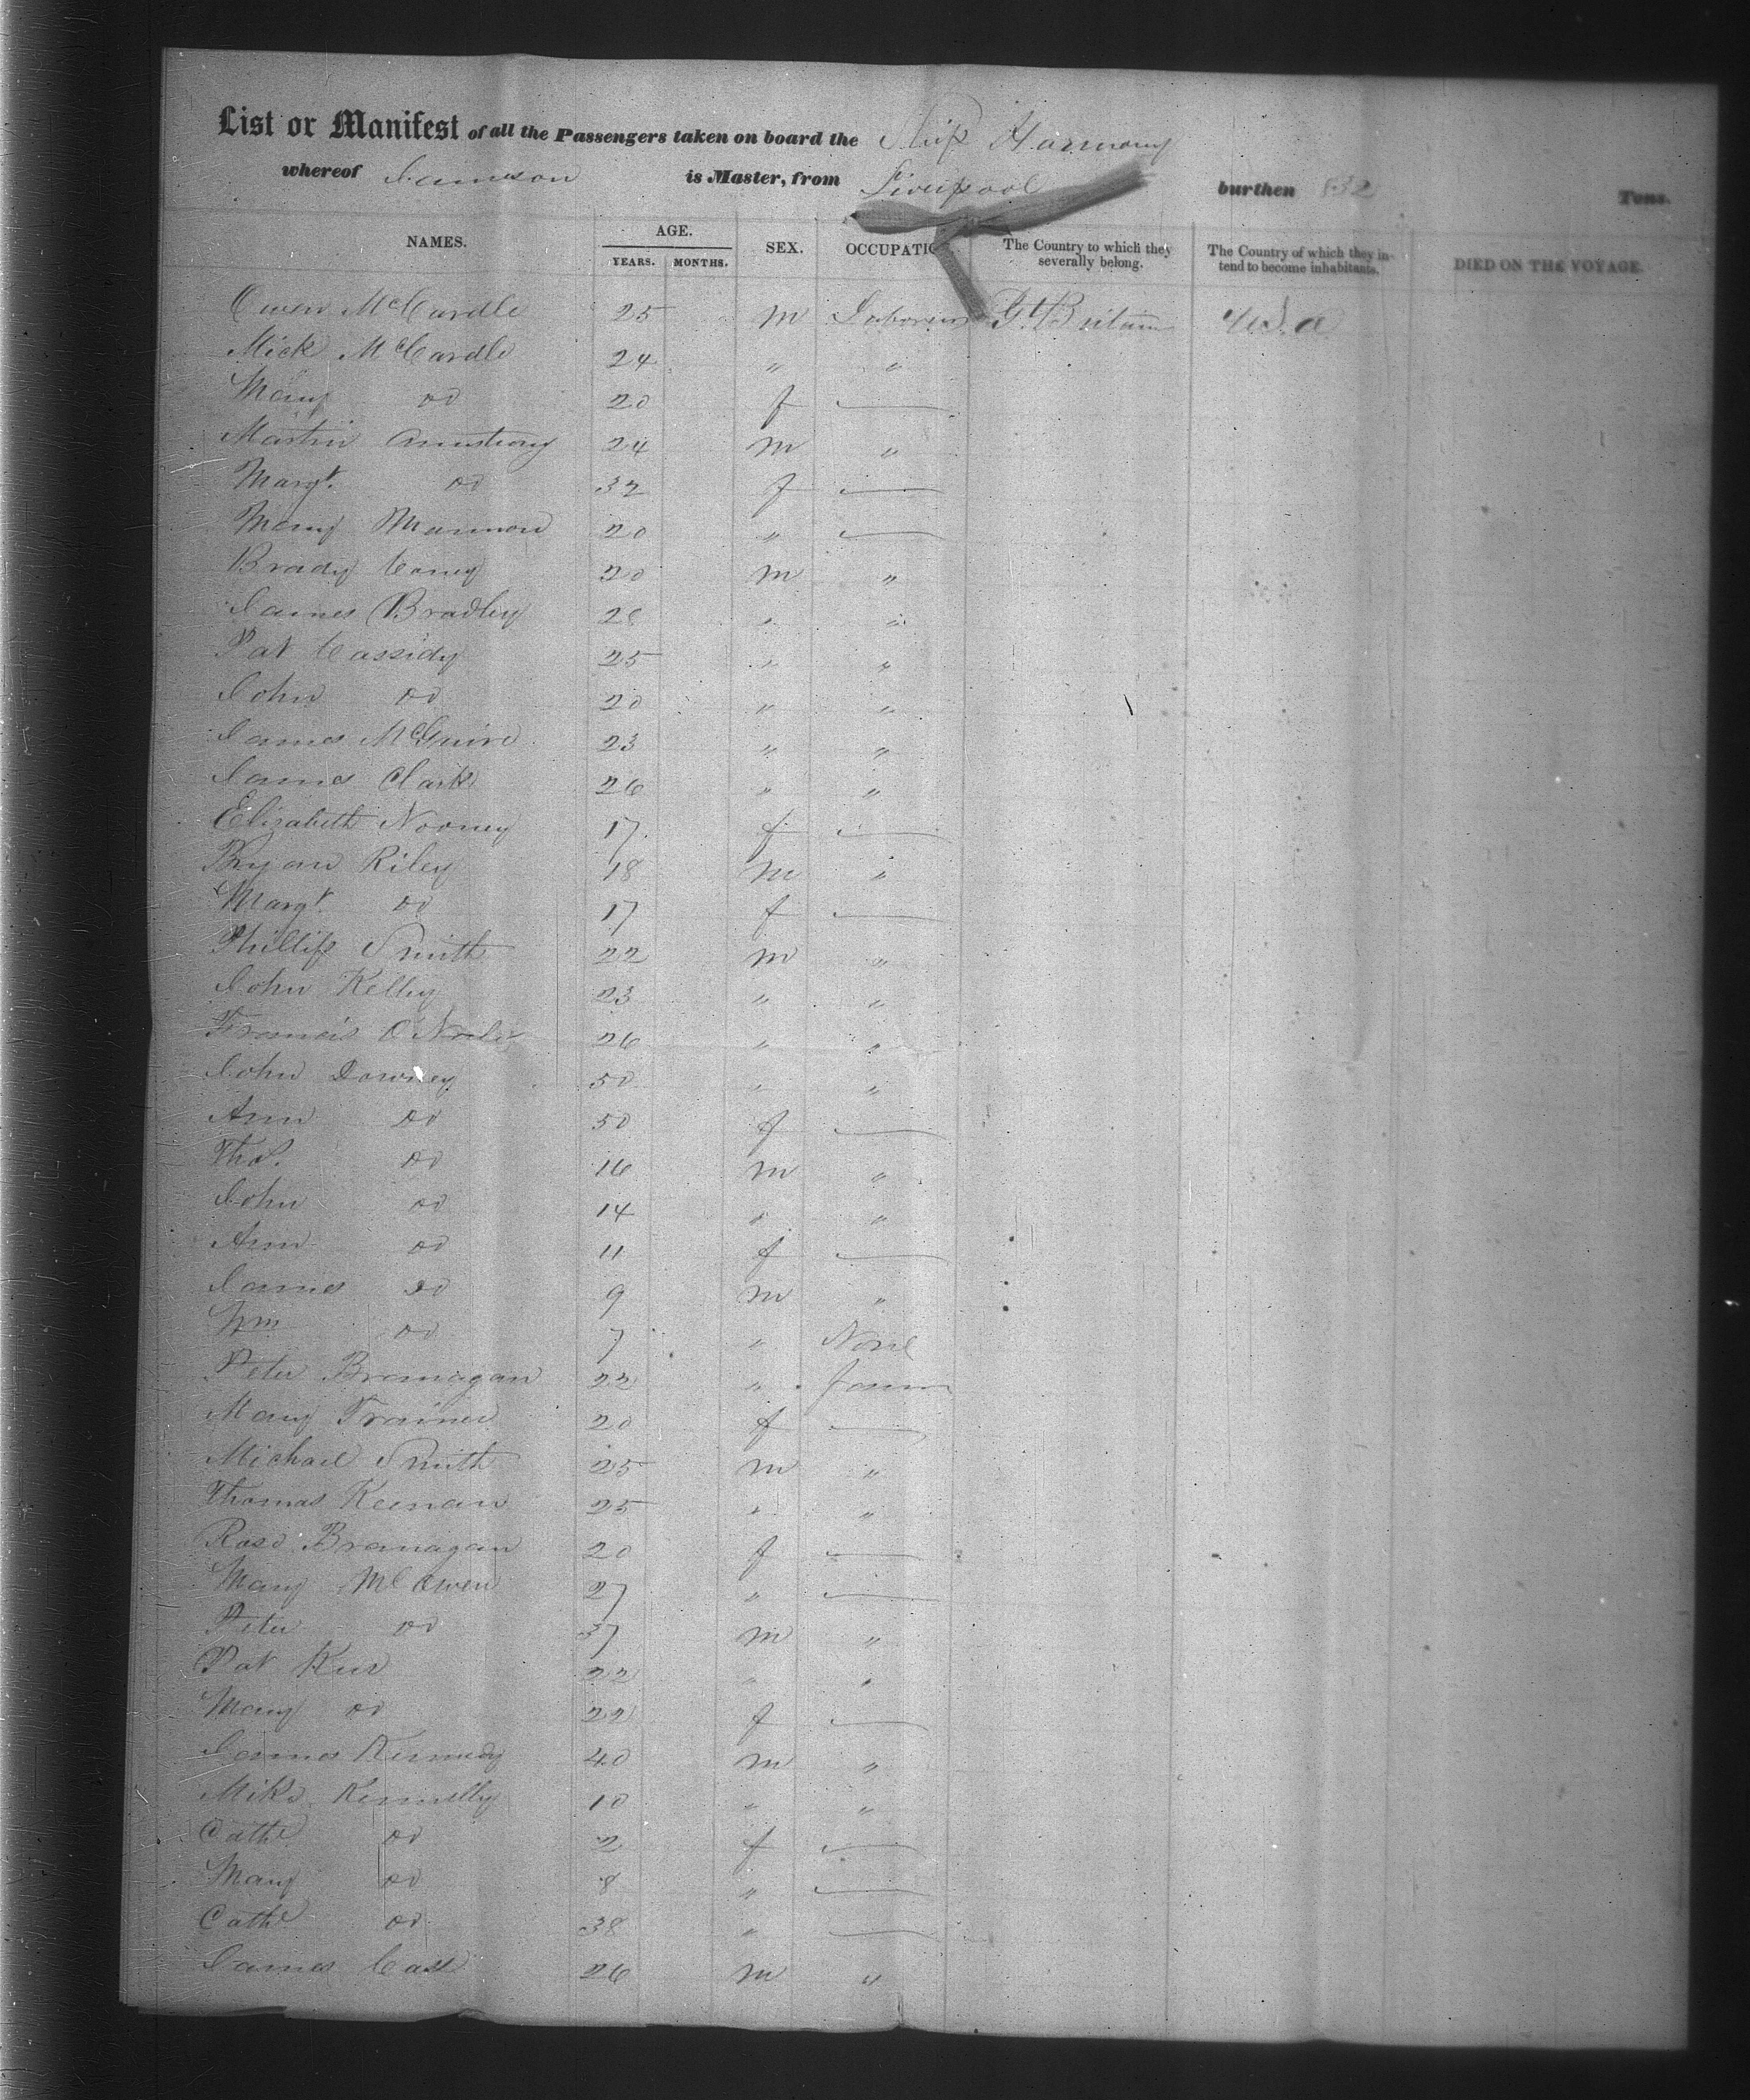 List or Manifest of all the Passengers taken on board the Ship Harmony
whereof is Master, from Liverpool burthen Tons.
NAMES. AGE. YEARS. MONTHS. SEX. The Country to which they severally belong. The Country of which they intend to become inhabitants. DIED ON THE VOYAGE.
Owen McCardle 25 m Laborers Gt Britain U.S.a
Mick McCardle 24 " "
Mary do 20 f —
Martin Armstrong 24 m "
Margt. do 32 f —
Mary 20 " —
Brady 20 m "
James Bradley " "
Pat Cassidy 25 " "
John do 20 " "
James McGuire 23 " "
James Clark 26 " "
Elizabeth Nooney 17 f —
Bryan Riley 18 m "
Margt. do 17 f —
Phillip Smith 22 m "
John Kelley 23 " "
Francis 26 " "
John Downey 50 " "
Ann do 50 f —
Thos. do 16 m "
John do 14 " "
Ann do 11 f —
James do 9 m "
Wm do 7 " None
Peter Branagan 22 "
Mary Trainer 20 f —
Michael Smith 25 m "
Thomas Keenan 25 " "
Rose Branagan 20 f —
Mary McOwen 27 " —
Peter do 37 m "
Pat 22 " "
Mary do 22 f —
James Kennedy 40 m "
Mike Kennelly 10 " "
Cathe do 2 f —
Mary do 8 " —
Cathe do 38 " —
James 26 m "